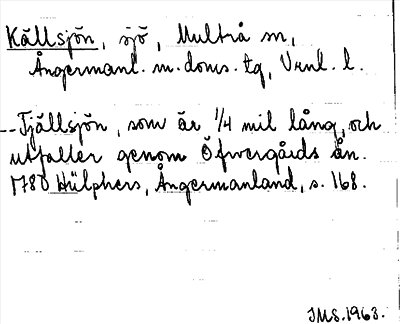 Källsjön, sjö, Multrå sn,
Ångermanl. m. doms. tg, Vrnl. l.
--Tjällsjön, som är 1/4 mil lång, och
utfaller genom Öfvergårds ån.
1780 Hülphers, Ångermanland, s. 168.
JMS. 1963.